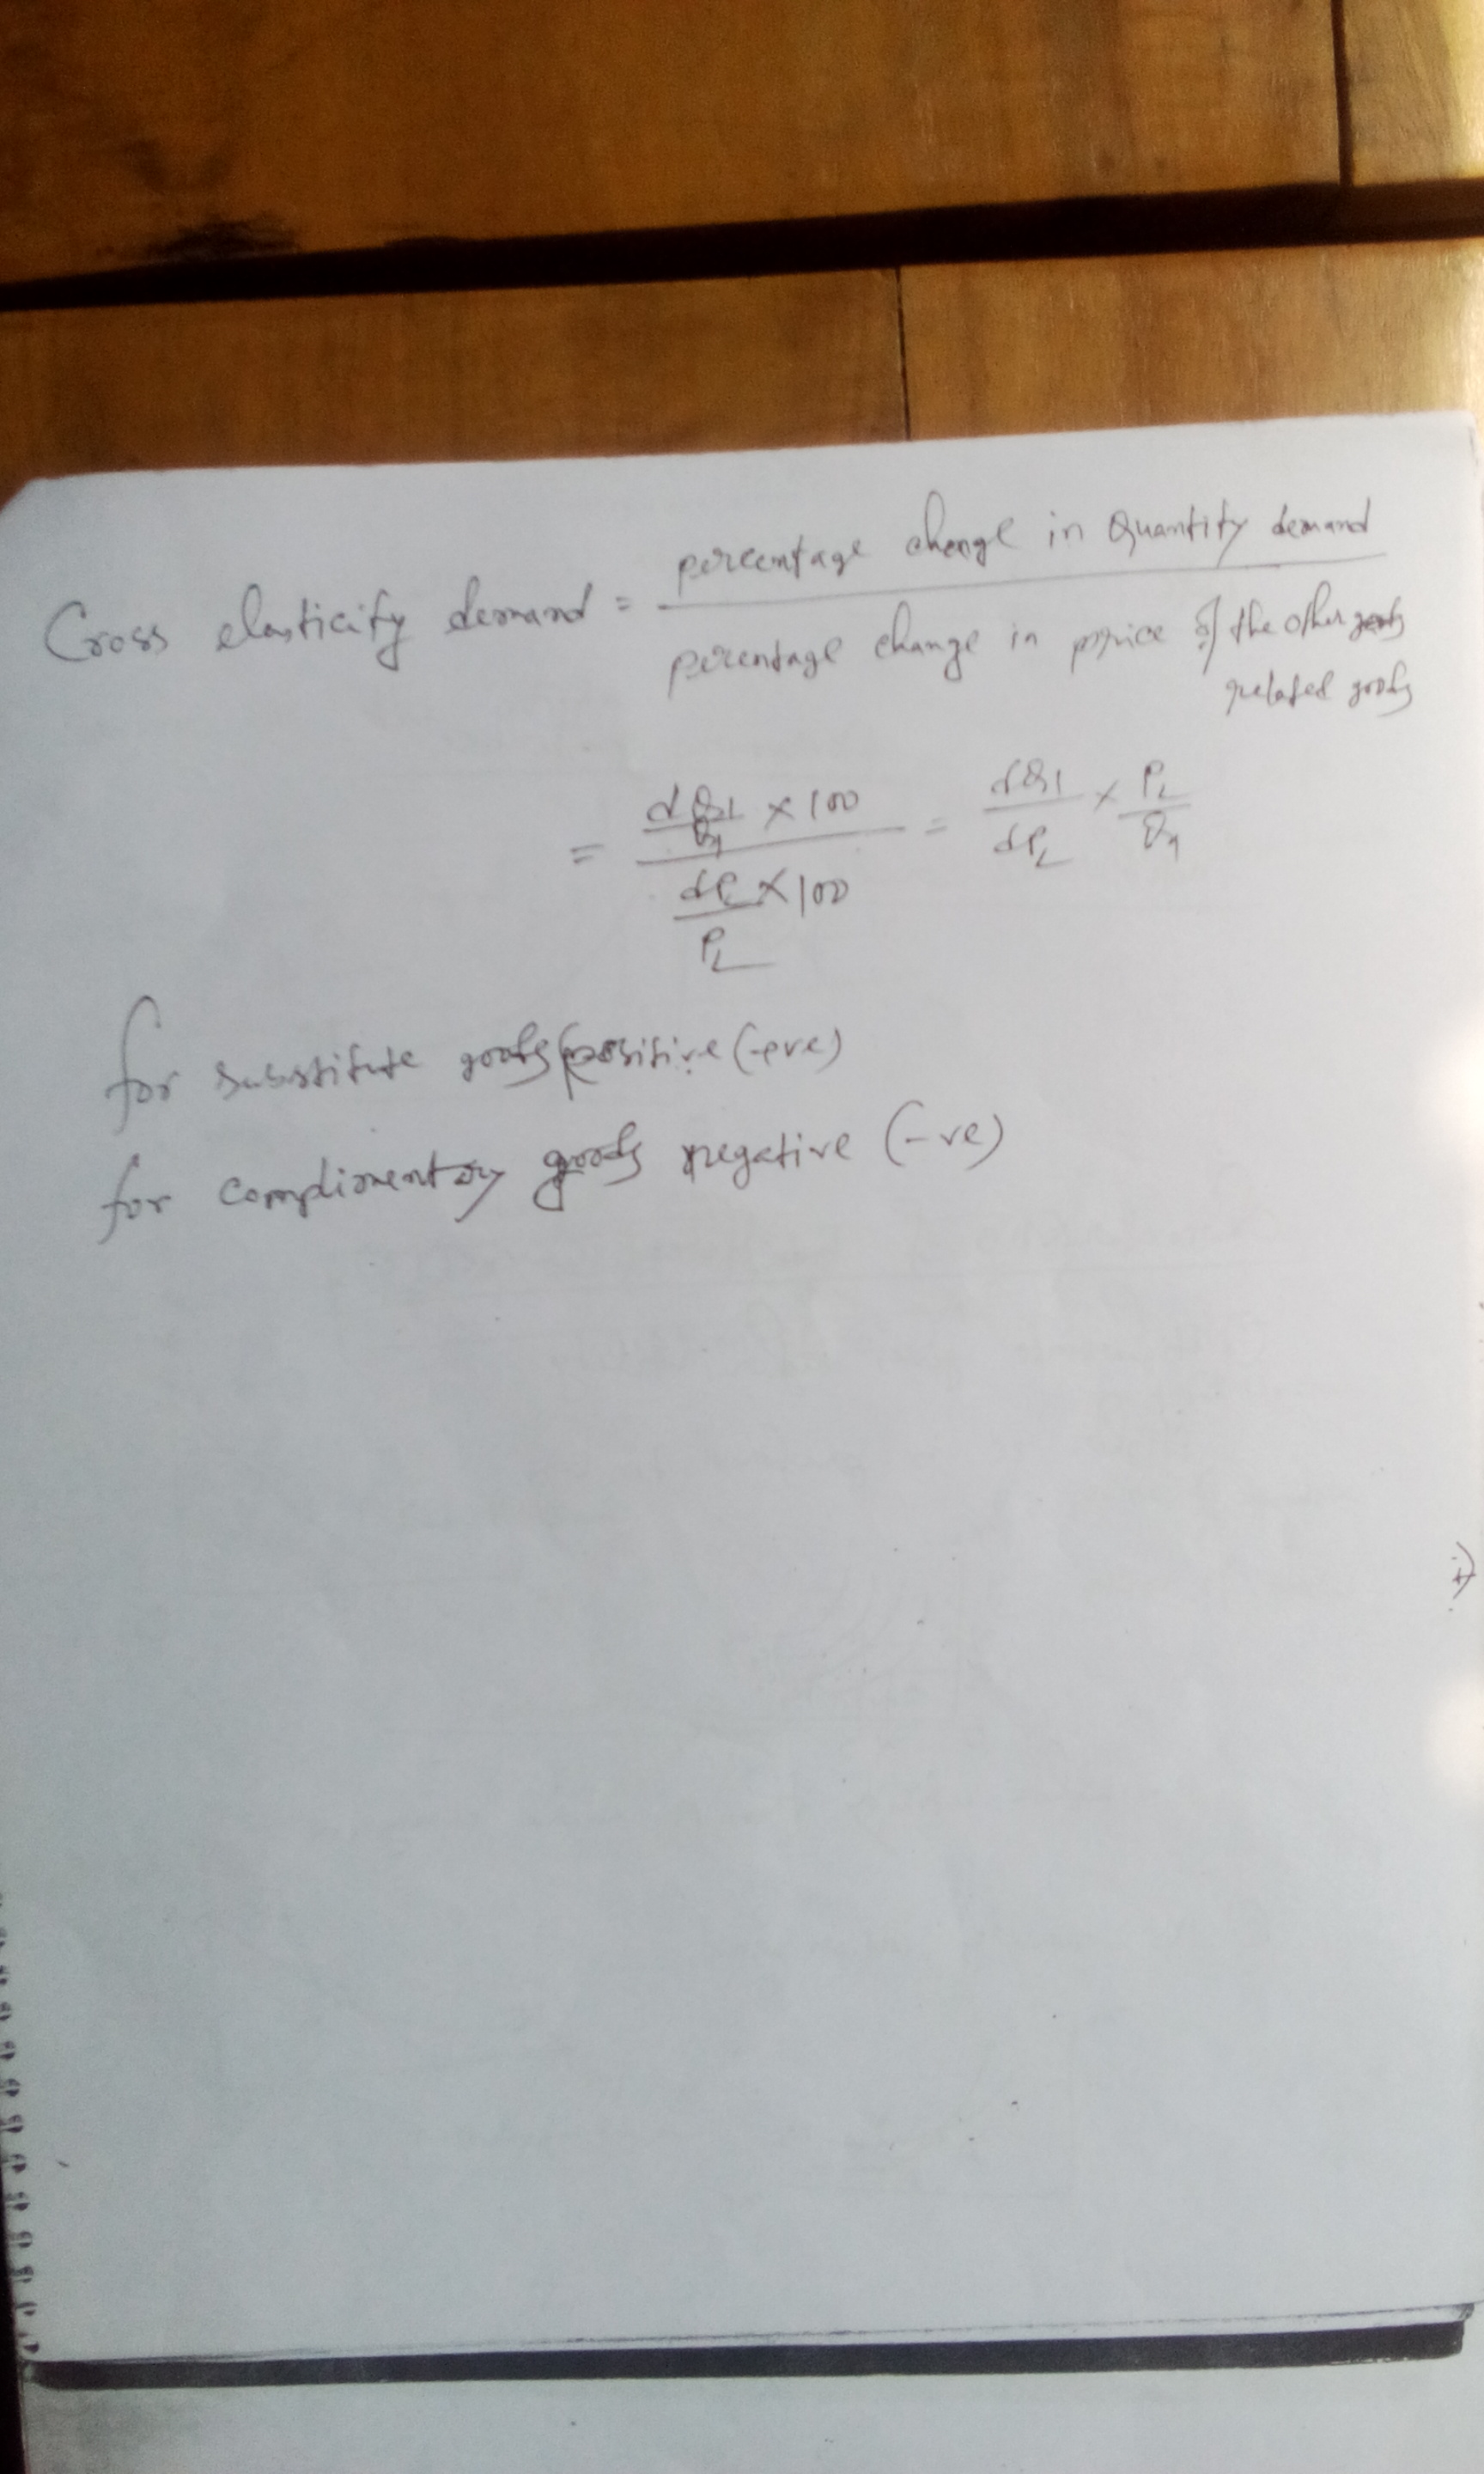 Cross elasticity demand = percentage change in Quantity demand
percentage change in price of the other goods
related goods
= dQ1/Q1 × 100 / dP2/P2 × 100 = dQ1/dP2 × P2/Q1
for substitute goods positive (+ve)
for complimentary goods negative (-ve)
i)